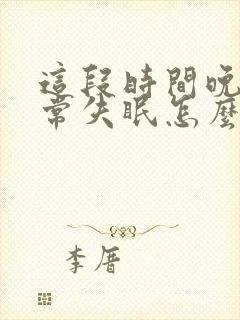 這段時間晚
常失眠怎麼
李厝